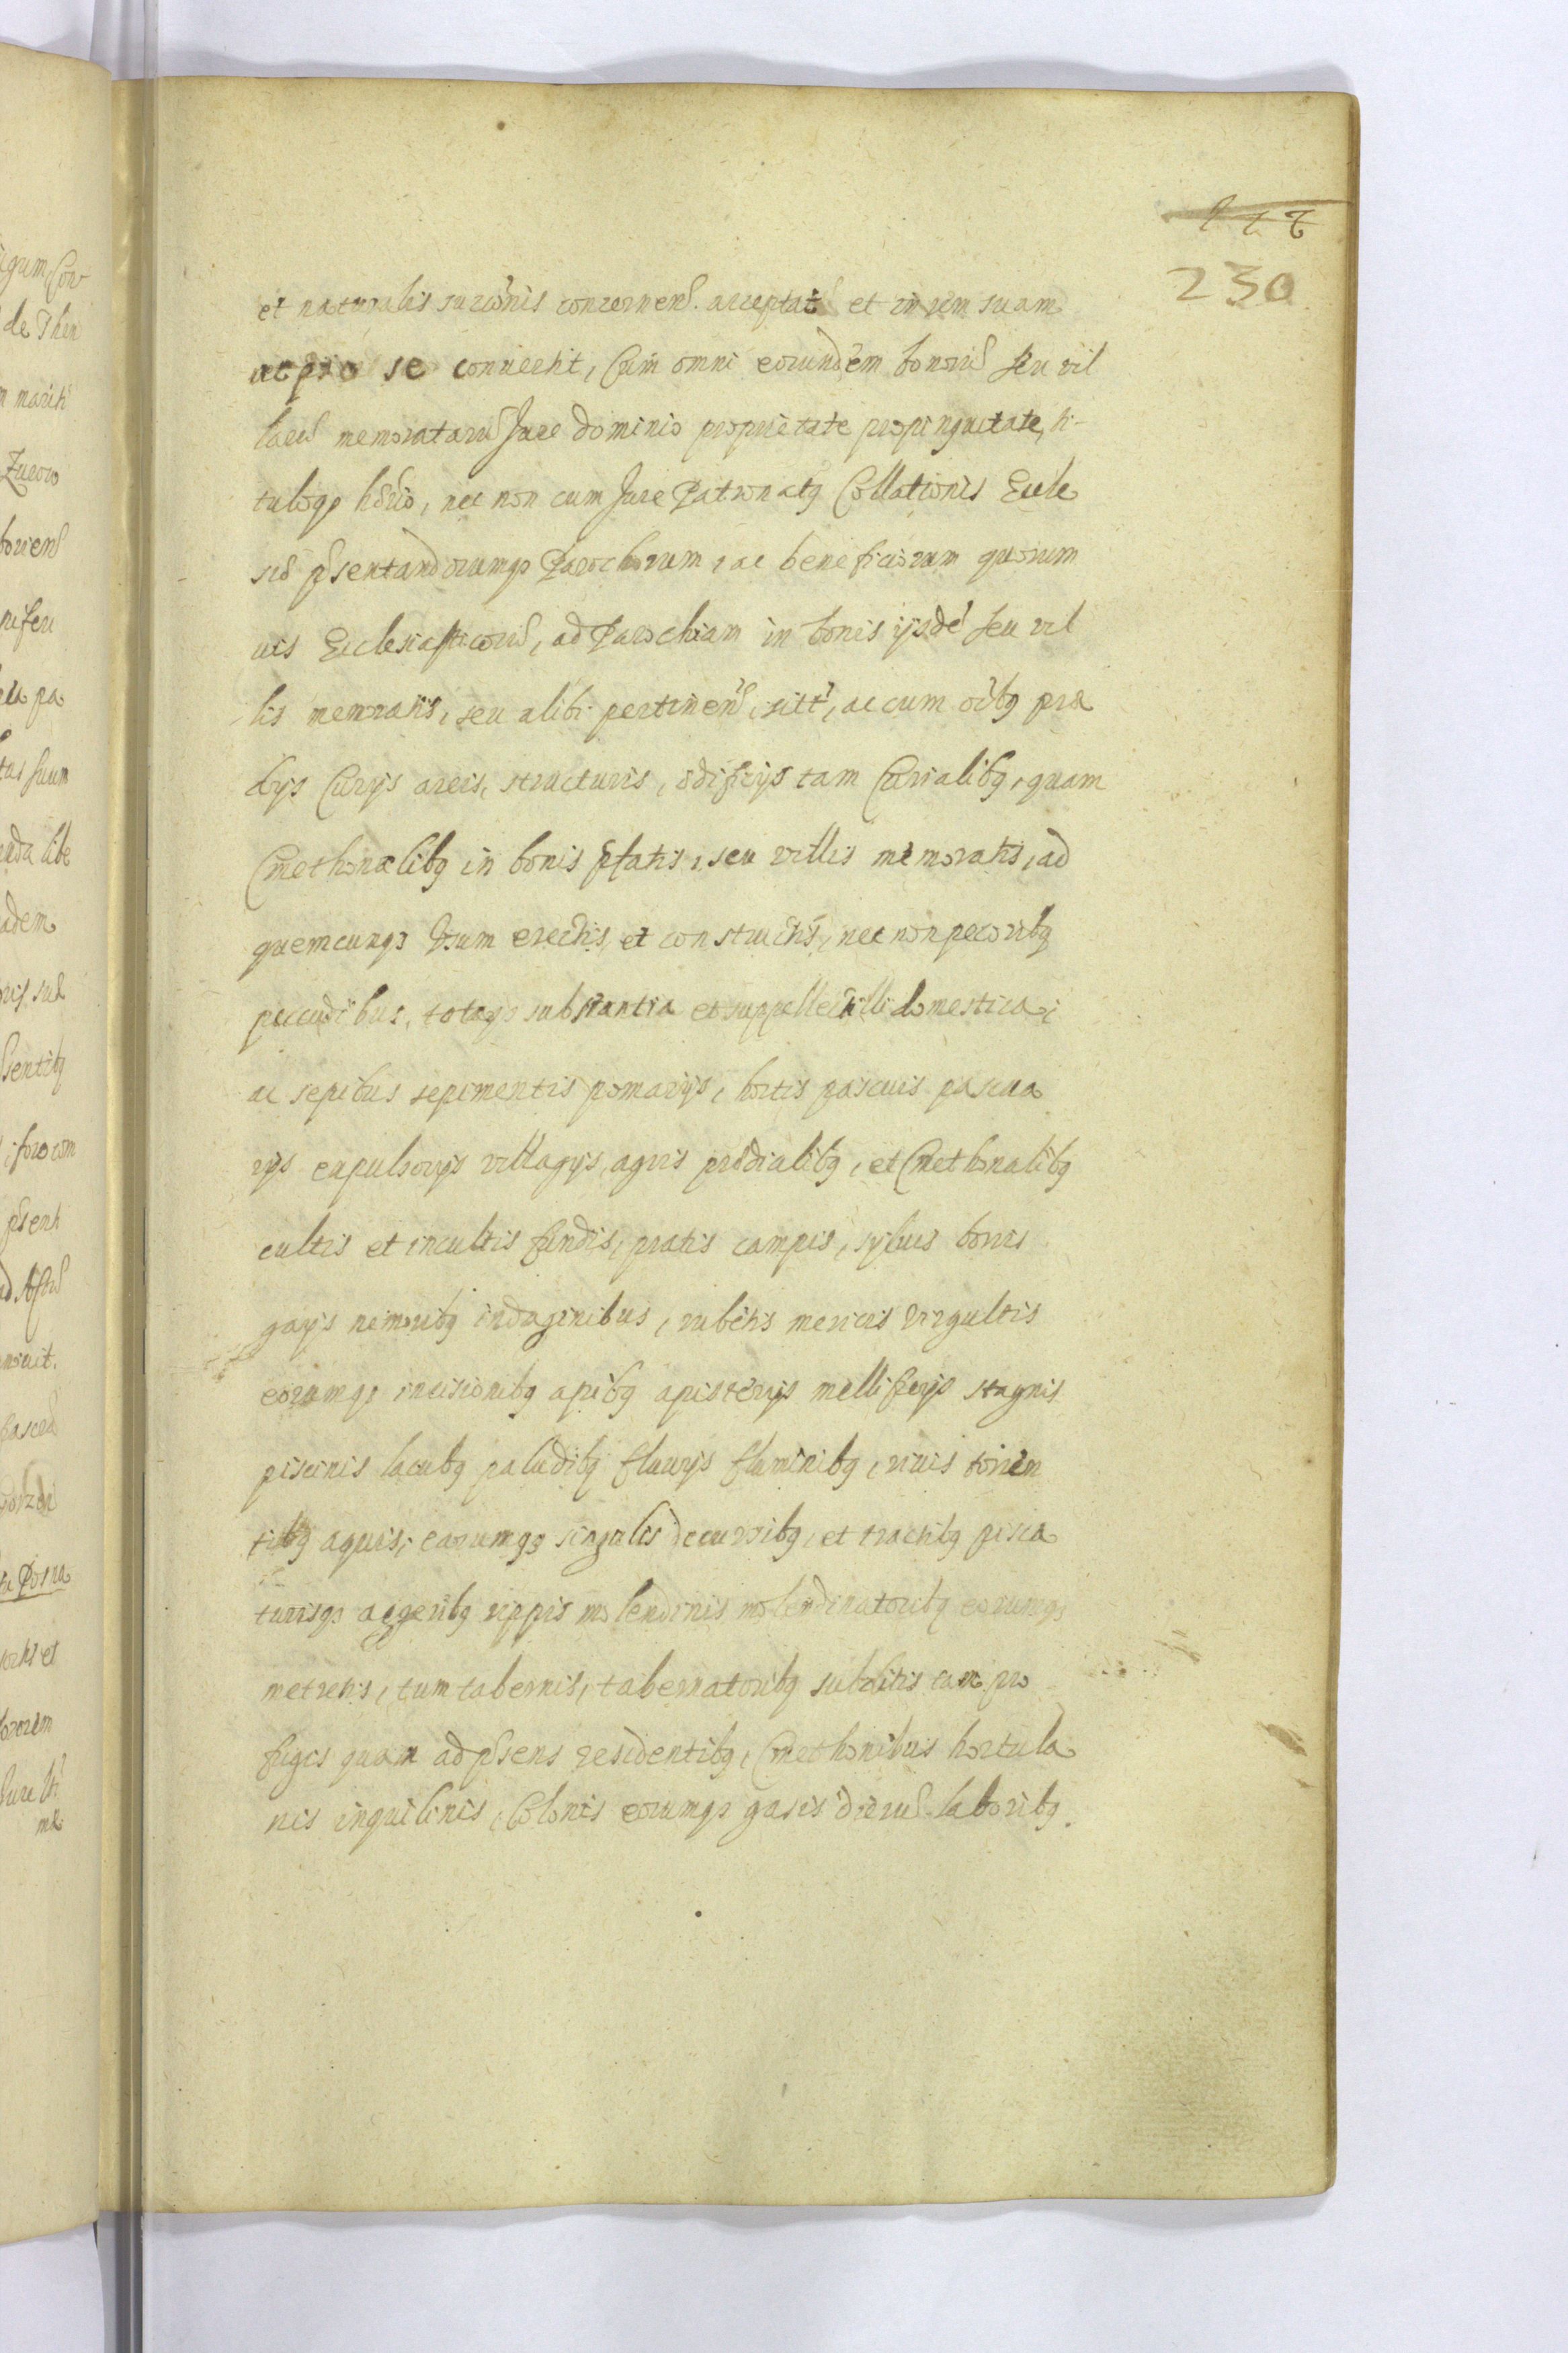 230
et naturalis succ̃onis concernen̄. acceptat et in rem suam
ac pro se conuertit, Cum omni eorundem bonorū seu vil
larū memoratarū Jure dominio proprietate propinquitate, ti-
tuloq₃ hdrio, nec non cum Jure Patronatꝰ Collationis Eccle
siæ pñsentandorumq₃ Parochorum, ac beneficiorum quorum
uis Ecclesiasticorū, ad Parochiam in bonis ijsdē seu vil
lis memoratis, seu alibi pertinen̄, sitt̃, ac cum oĩbꝰ præ
dijs Curijs areis, structuris, ædificijs tam Curialibꝰ, quam
Cmethonalibꝰ in bonis pñfatis, seu villis memoratis, ad
quemcunq₃ Vsum erectis, et constructis, nec non pecoribꝰ
pecudibus, totaq₃ substantia et suppellectilli domestica,
ac sepibus sepimentis pomarijs, hortis pascuis pascua
rijs expulsorijs villagijs, agris prædialibꝰ, et Cmethonalibꝰ
cultis et incultis fundis, pratis campis, syluis borris
gays nemoribꝰ indaginibus, rubetis mericis Virgultis
eorumq₃ incisionibꝰ apibꝰ apisterijs mellificijs stagnis
piscinis lacubꝰ paludibꝰ fluuijs fluminibꝰ, riuis torren
tibꝰ aquis, earumq₃ singulis decursibꝰ, et tractibꝰ pisca
turisq₃ aggeribꝰ rippis molendinis molendinatoribꝰ eorumq₃
metretis, tum tabernis, tabernatoribꝰ subditis tam pro
fugis quam ad pñsens residentibꝰ, Cmethonibus hortula
nis inquilinis, Colonis eorumq₃ gazis dierū laboribꝰ.
igum, Con
de Then
n mariti
adem
pñsenti